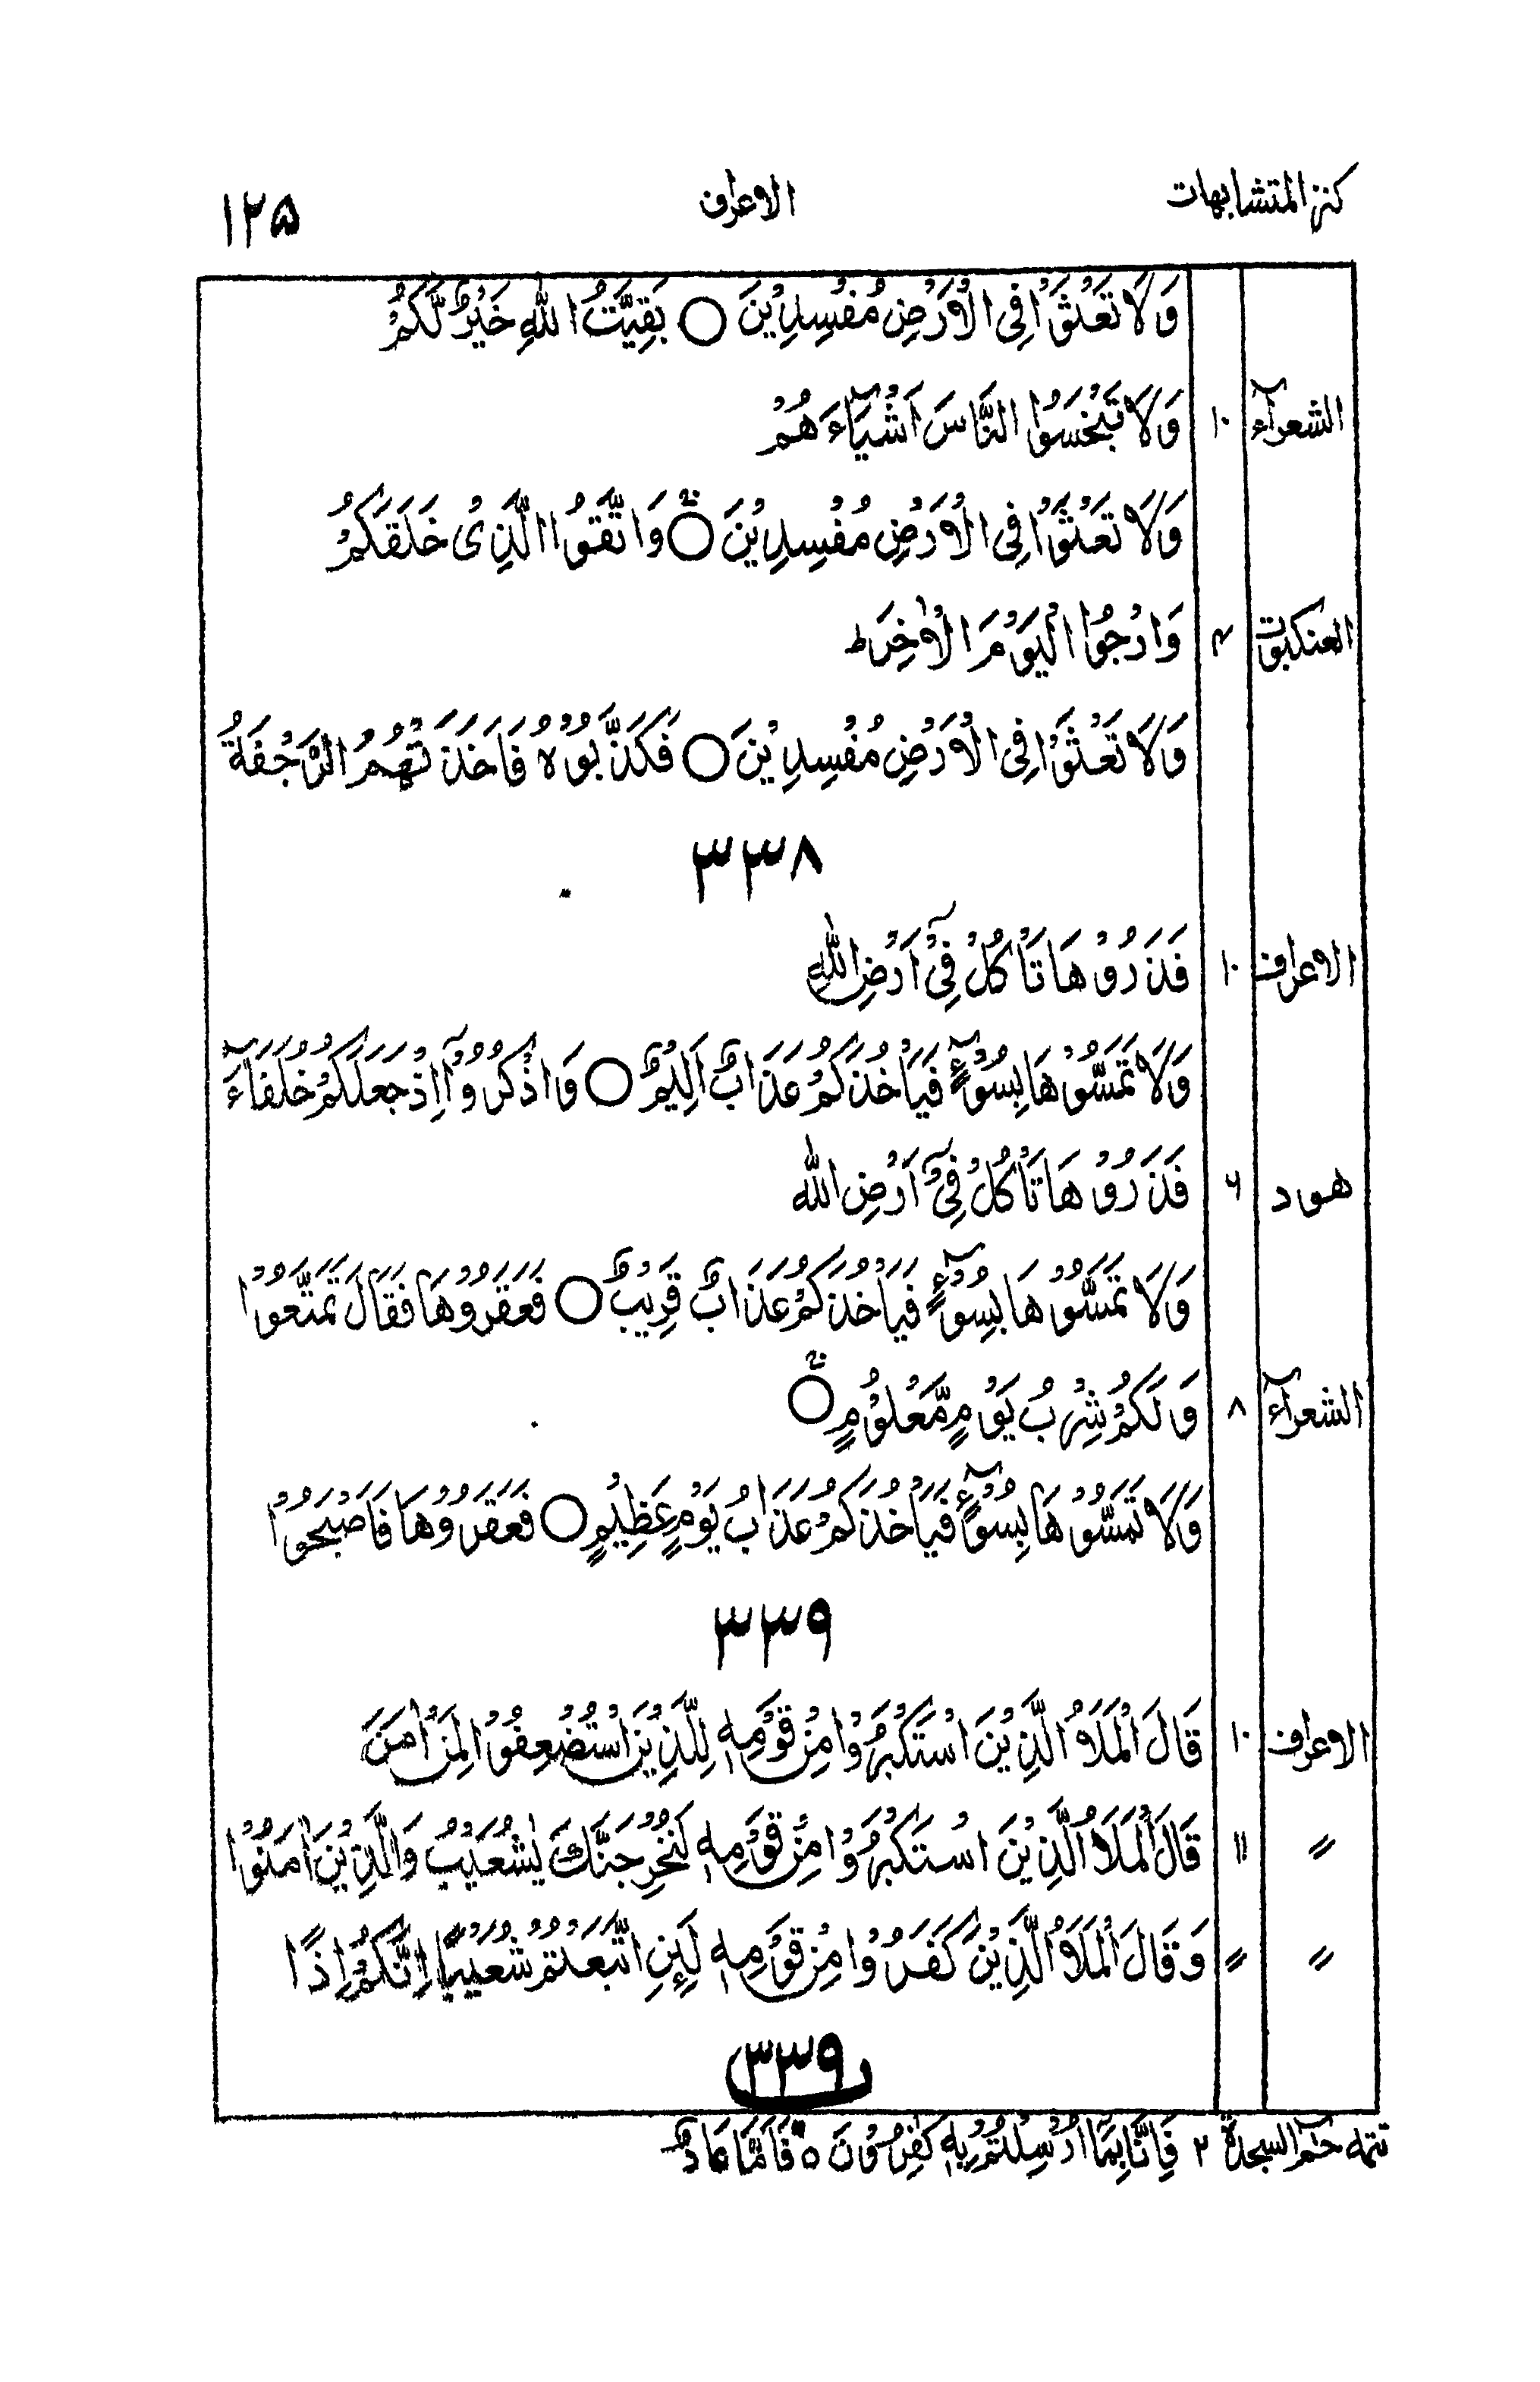 كنز المتشابهات الاعراف ١٢٥
وَلَا تَعْثَوْا فِى الْاَرْضِ مُفْسِدِيْنَ ○ بَقِيَّتُ اللّٰهِ خَيْرٌ لَّكُمْ
الشعرآء ١٠ وَلَا تَبْخَسُوا النَّاسَ اَشْيَآءَهُمْ
وَلَا تَعْثَوْا فِى الْاَرْضِ مُفْسِدِيْنَ ○ وَاتَّقُوا الَّذِىْ خَلَقَكُمْ
العنكبوت ٤ وَارْجُوا الْيَوْمَ الْاٰخِرَ
وَلَا تَعْثَوْا فِى الْاَرْضِ مُفْسِدِيْنَ ○ فَكَذَّبُوْهُ فَاَخَذَتْهُمُ الرَّجْفَةُ
٣٣٨
الاعراف ١٠ فَذَرُوْهَا تَاْكُلْ فِىْٓ اَرْضِ اللّٰهِ
وَلَا تَمَسُّوْهَا بِسُوْٓءٍ فَيَاْخُذَكُمْ عَذَابٌ اَلِيْمٌ ○ وَاذْكُرُوْٓا اِذْ جَعَلَكُمْ خُلَفَآءَ
هود ٦ فَذَرُوْهَا تَاْكُلْ فِىْٓ اَرْضِ اللّٰه
وَلَا تَمَسُّوْهَا بِسُوْٓءٍ فَيَاْخُذَكُمْ عَذَابٌ قَرِيْبٌ ○ فَعَقَرُوْهَا فَقَالَ تَمَتَّعُوْا
الشعرآء ٨ وَلَكُمْ شِرْبُ يَوْمٍ مَّعْلُوْمٍ ○
وَلَا تَمَسُّوْهَا بِسُوْٓءٍ فَيَاْخُذَكُمْ عَذَابُ يَوْمٍ عَظِيْمٍ ○ فَعَقَرُوْهَا فَاَصْبَحُوْا
٣٣٩
الاعراف ١٠ قَالَ الْمَلَاُ الَّذِيْنَ اسْتَكْبَرُوْا مِنْ قَوْمِهٖ لِلَّذِيْنَ اسْتُضْعِفُوْا لِمَنْ اٰمَنَ
〃 ١١ قَالَ الْمَلَاُ الَّذِيْنَ اسْتَكْبَرُوْا مِنْ قَوْمِهٖ لَنُخْرِجَنَّكَ يٰشُعَيْبُ وَالَّذِيْنَ اٰمَنُوْا
〃 〃 وَقَالَ الْمَلَاُ الَّذِيْنَ كَفَرُوْا مِنْ قَوْمِهٖ لَئِنِ اتَّبَعْتُمْ شُعَيْبًا اِنَّكُمْ اِذًا
٣٣٩
تتمه حٰمٓ السجدة ٢ فَاِنَّا بِمَآ اُرْسِلْتُمْ بِهٖ كٰفِرُوْنَ ○ فَاَمَّا عَادٌ